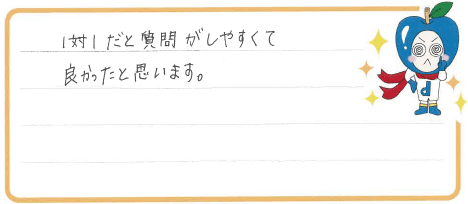 1対1だと質問がしやすくて
良かったと思います。
d